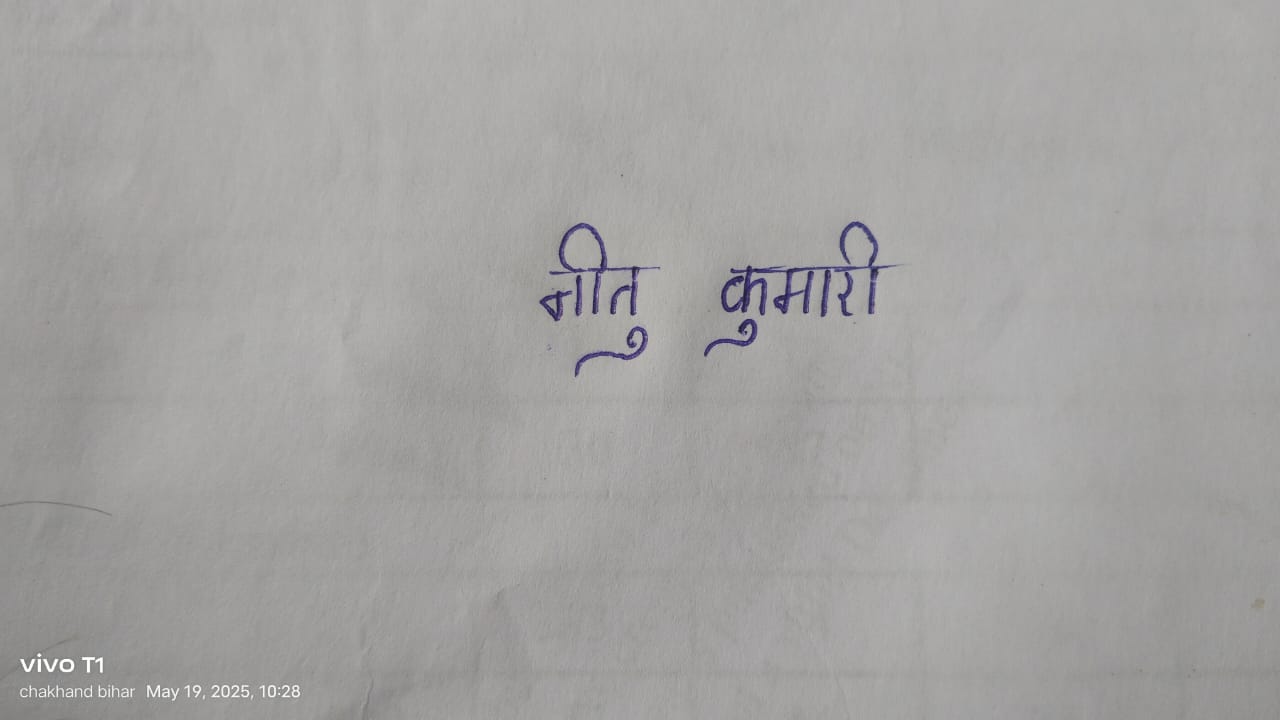 नीतु कुमारी
vivo T1
chakhand bihar May 19, 2025, 10:28